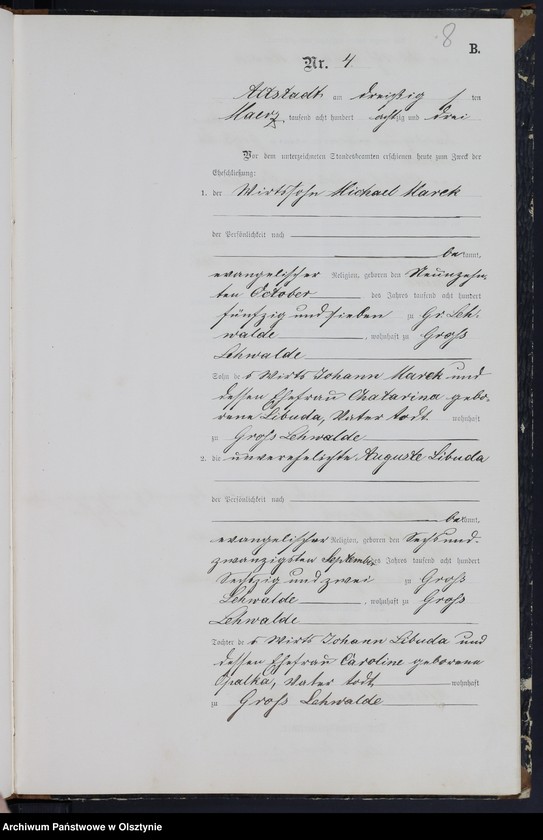 8
B.
Nr. 4
Altstadt am dreißig ten
Maerz tausend acht hundert achtzig und drei
Vor dem unterzeichneten Standesbeamten erschienen heute zum Zweck der
Eheschließung:
1. der Wirtssohn Michael Marek
der Persönlichkeit nach
be kannt,
evangelischer Religion, geboren den Neunzehn-
ten October des Jahres tausend acht hundert
fünfzig und sieben zu Gr. Leh-
walde, wohnhaft zu Groß
Lehwalde
Sohn des Wirts Johann Marek und
dessen Ehefrau Chatarina gebo-
rene Libuda, Vater todt wohnhaft
zu Groß Lehwalde
2. die unverehelichte Auguste Libuda
der Persönlichkeit nach
be kannt,
evangelischer Religion, geboren den Sechsund-
zwanzigsten September des Jahres tausend acht hundert
Sechtzig und zwei zu Groß
Lehwalde, wohnhaft zu Groß
Lehwalde
Tochter des Wirts Johann Libuda und
dessen Ehefrau Caroline geborene
Opalka, Vater todt wohnhaft
zu Groß Lehwalde
Archiwum Państwowe w Olsztynie